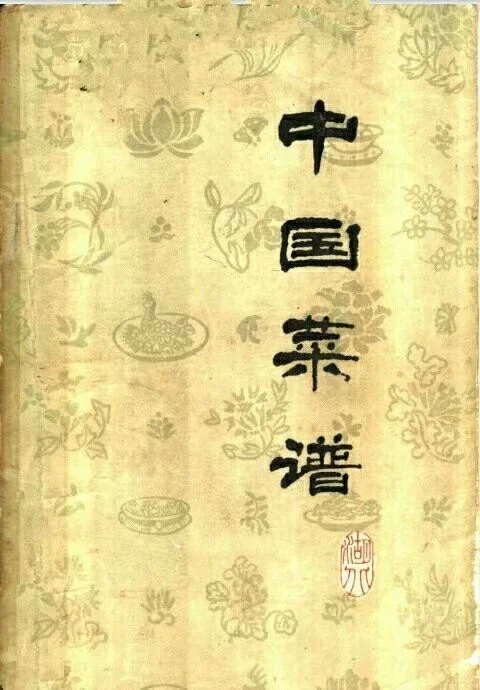 中国菜谱
湖北